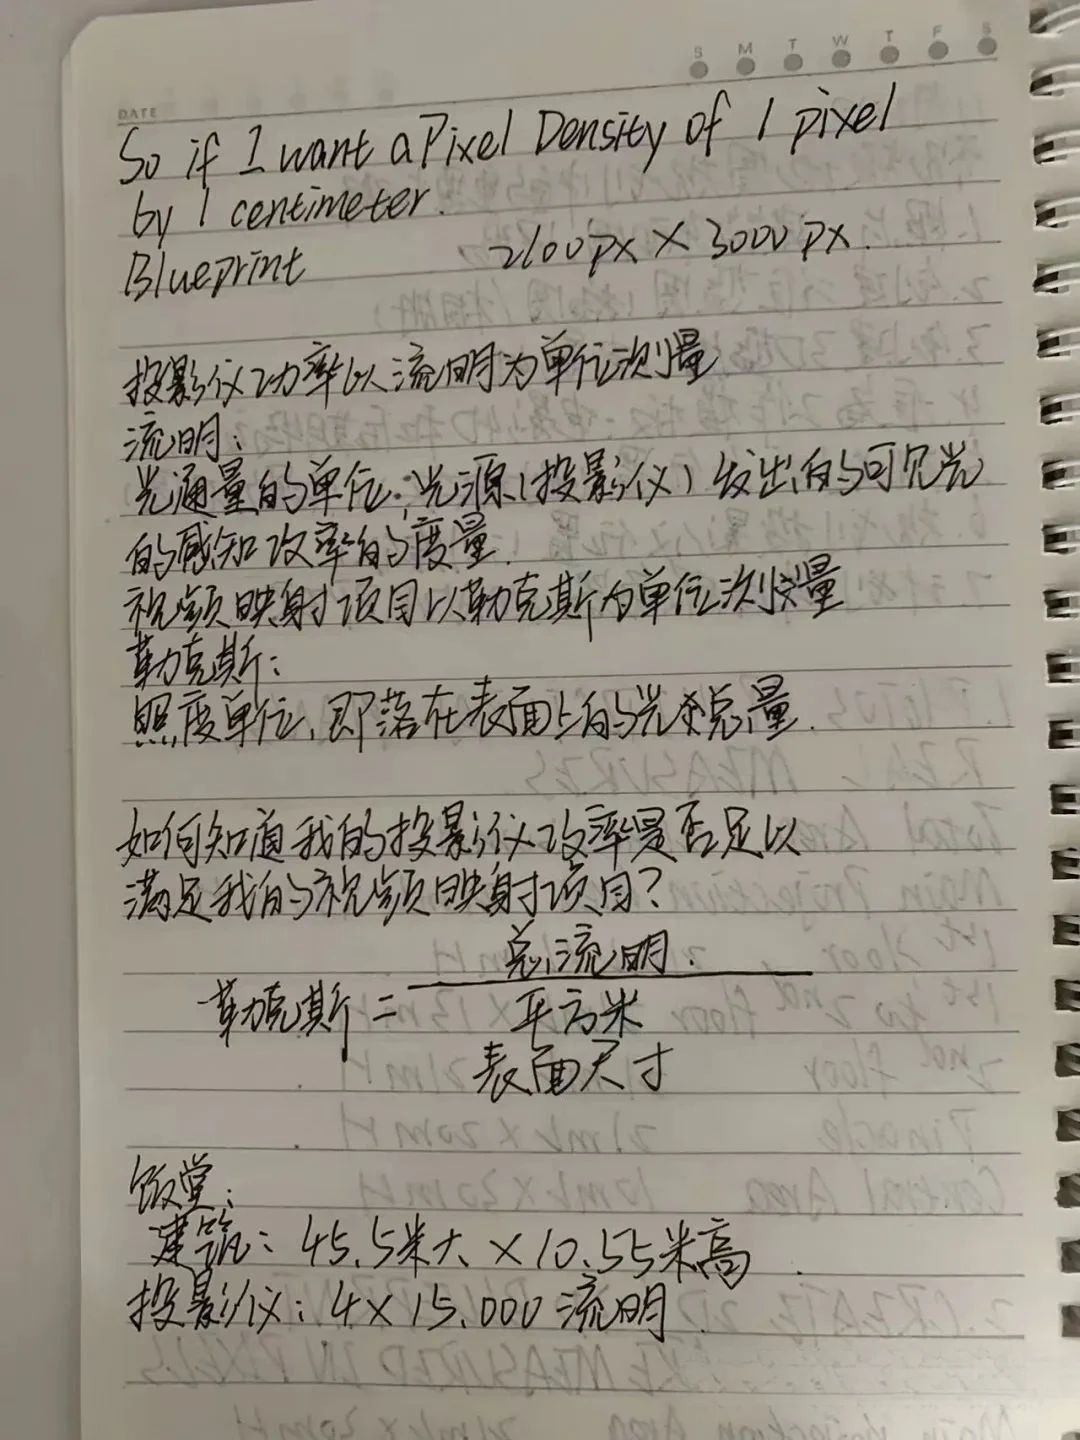 S M T W T F S
DATE
So if I want a Pixel Density of 1 pixel
by 1 centimeter.
Blueprint 2100px × 3000px.
投影仪功率以流明为单位测量
流明:
光通量的单位;光源(投影仪)发出的可见光
的感知功率的度量.
视频映射项目以勒克斯为单位测量
勒克斯:
照度单位,即落在表面上的光总量.
如何知道我的投影仪功率是否足以
满足我的视频映射项目?
总流明.
勒克斯 =
平方米
表面尺寸
饭堂:
建筑: 45.5米大 × 10.55米高
投影仪: 4×15.000 流明